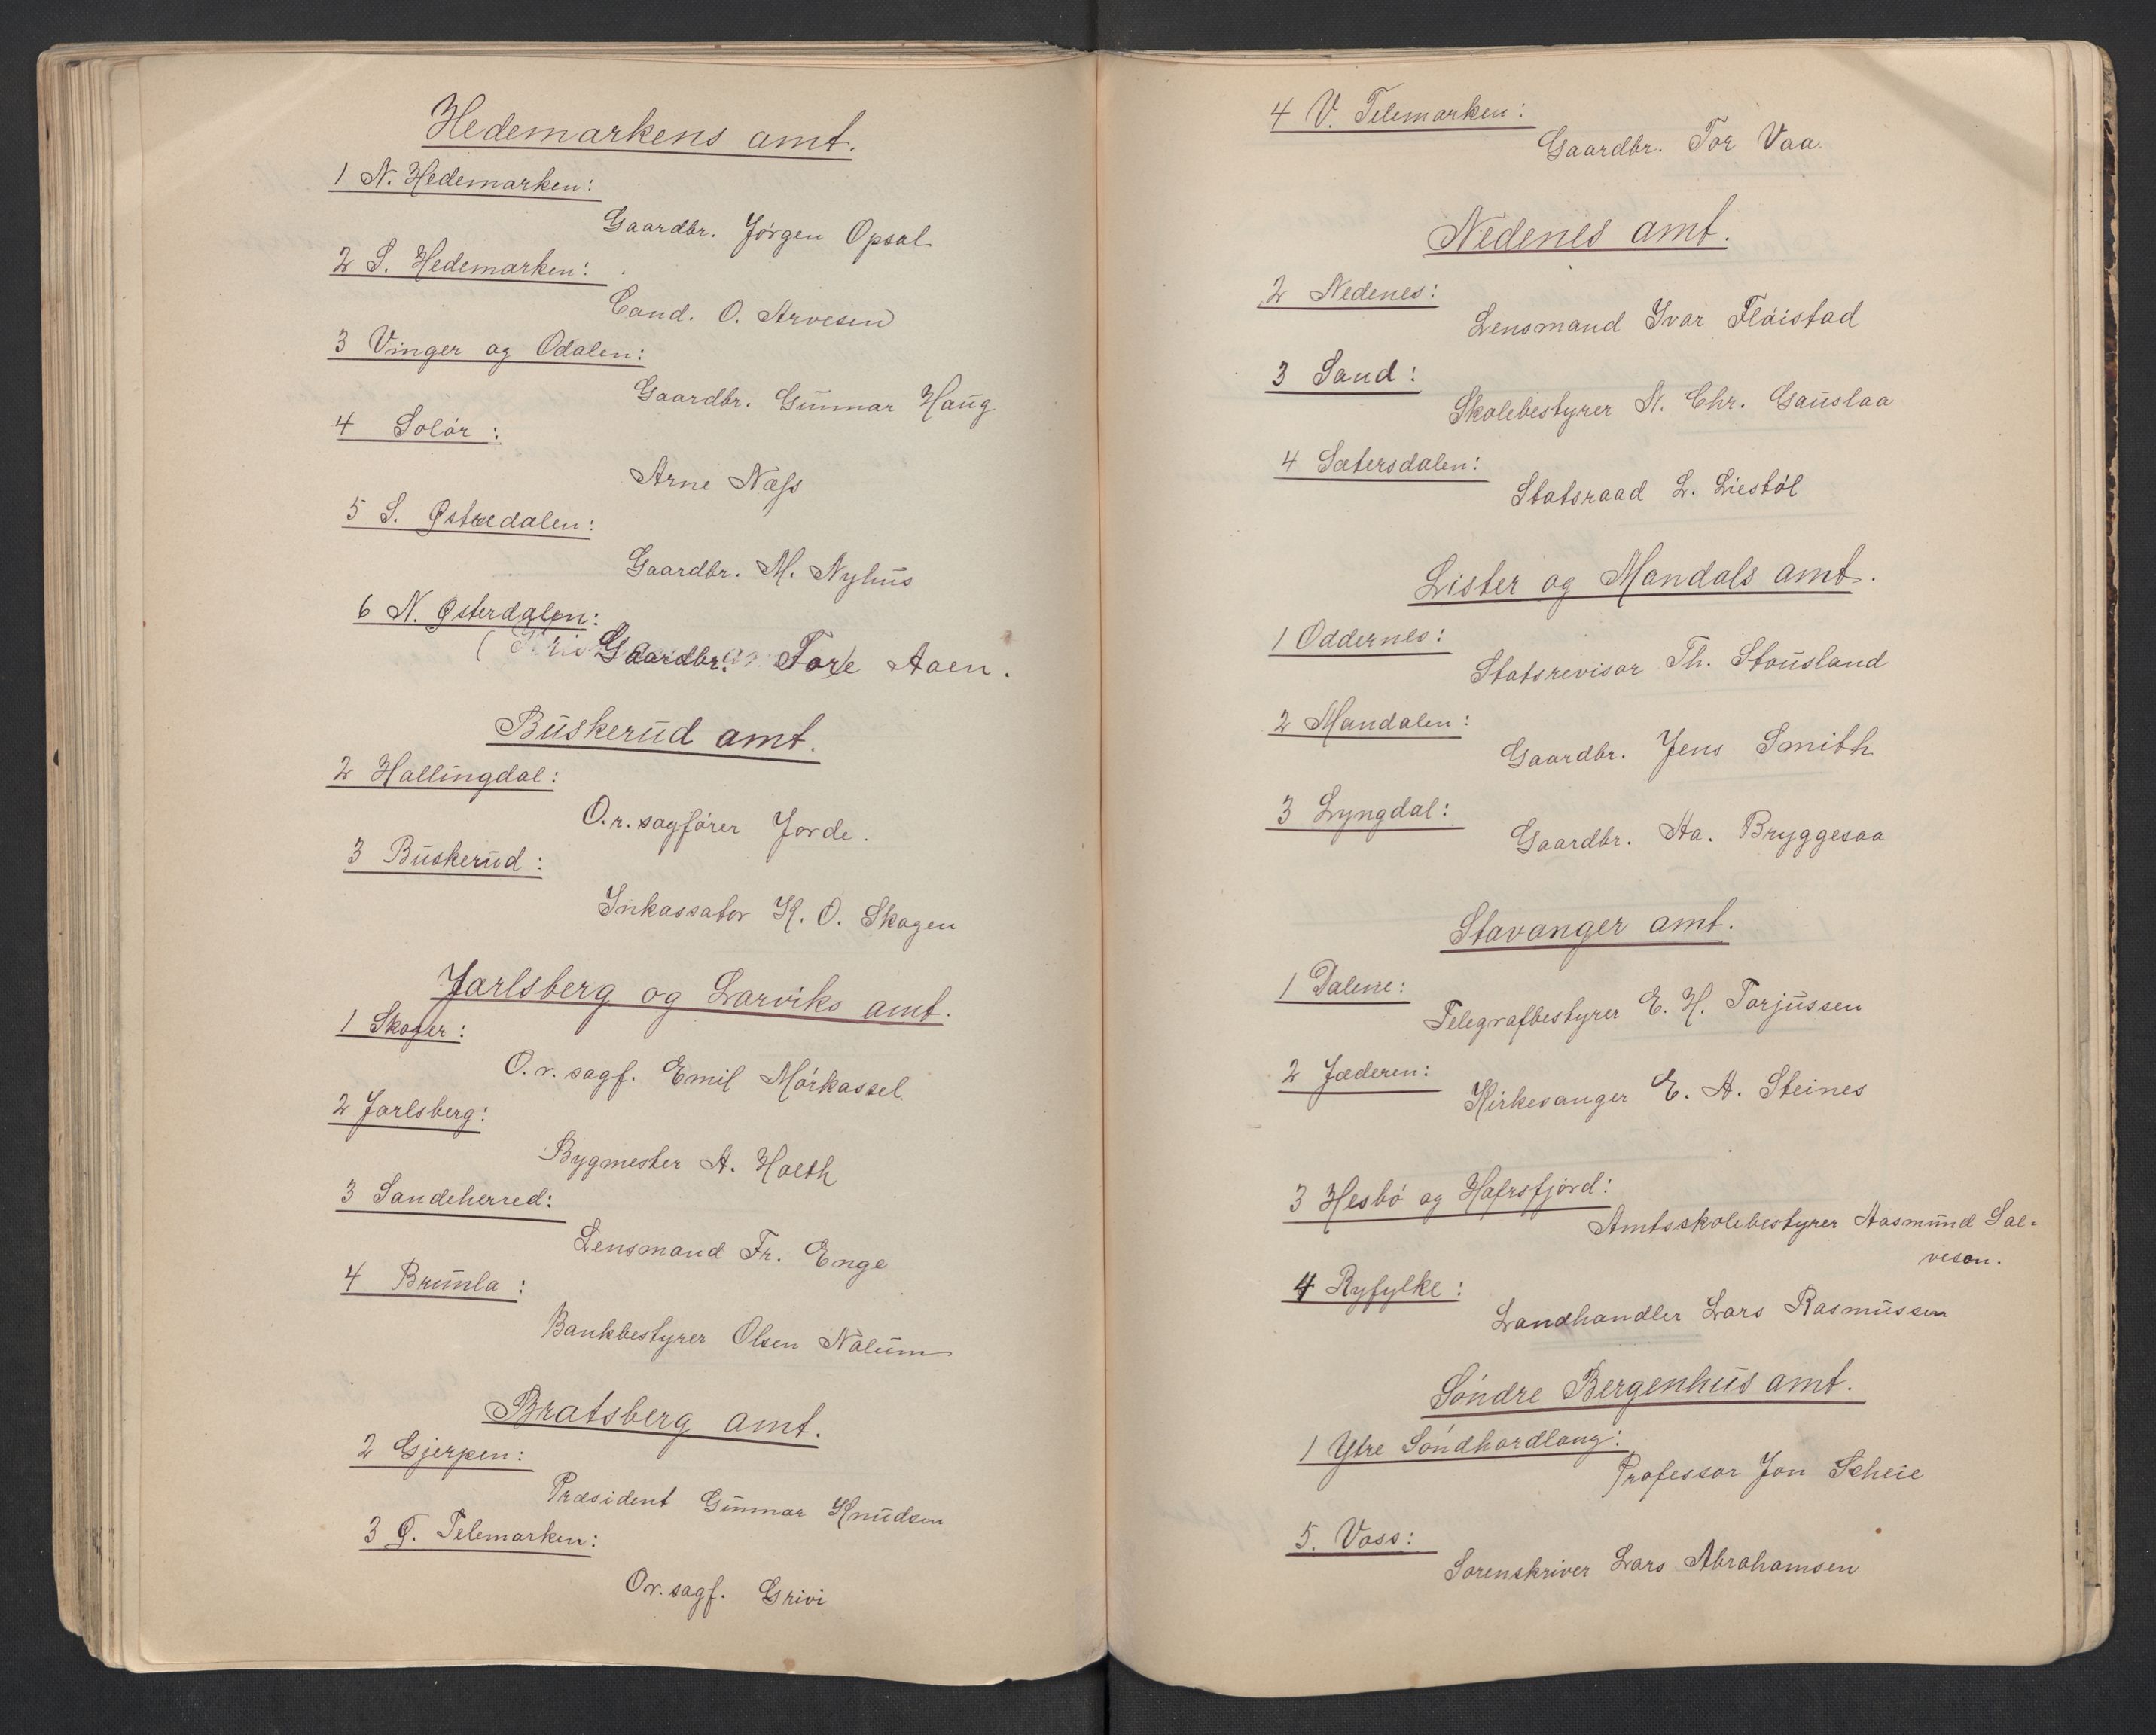 Hedemarkens amt.
1 N. Hedemarken:
Gaardbr. Jørgen Opsal
2 S. Hedemarken:
Cand. O. Arvesen
3 Vinger og Odalen:
Gaardbr. Gunnar Haug
4 Solør:
Arne Næss
5 S. Østredalen:
Gaardbr. M. Nyhus
6 N. Østerdalen:
Gaardbr. Tore Aaen.
Buskerud amt.
2 Hallingdal:
O.r.sagfører Jorde.
3 Buskerud:
Inkassator K. O. Skagen
Jarlsberg og Larviks amt.
1 Skoger:
O.r.sagf. Emil Mørkassel.
2 Jarlsberg:
Bygmester A. Holth
3 Sandeherred:
Lensmand Fr. Enge
4 Brunla:
Bankbestyrer Olsen Nalum
Bratsberg amt.
2 Gjerpen:
Præsident Gunnar Knudsen
3 Ø. Telemarken:
Or.sagf. Grivi
4 V. Telemarken:
Gaardbr. Tor Vaa.
Nedenes amt.
2 Nedenes:
Lensmand Ivar Fløistad
3 Sand:
Skolebestyrer N. Chr. Gauslaa
4 Sætersdalen:
Statsraad L. Liestøl
Lister og Mandals amt.
1 Oddernes:
Statsrevisor Th. Stousland
2 Mandalen:
Gaardbr. Jens Smith
3 Lyngdal:
Gaardbr. Aa. Bryggesaa
Stavanger amt.
1 Dalene:
Telegrafbestyrer E. H. Torjussen
2 Jæderen:
Kirkesanger E. A. Steines
3 Hesbø og Hafrsfjord:
Amtsskolebestyrer Aasmund Sal-
vesen.
4 Ryfylke:
Landhandler Lars Rasmussen
Søndre Bergenhus amt.
1 Ytre Søndhordlang:
Professor Jon Scheie
5. Voss:
Sorenskriver Lars Abrahamsen